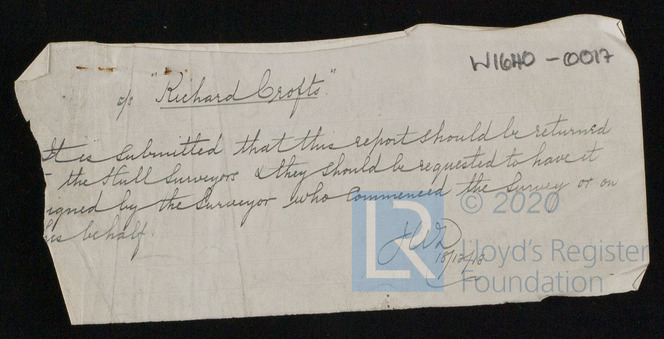 W1640 - 0017
o/s "Richard Crofts"
It is submitted that this report should be returned
the Hull Surveyors & they should be requested to have it
igned by the Surveyor who commenced the Survey or on
his behalf.
18/12/18
© 2020
LR
Lloyd's Register
Foundation